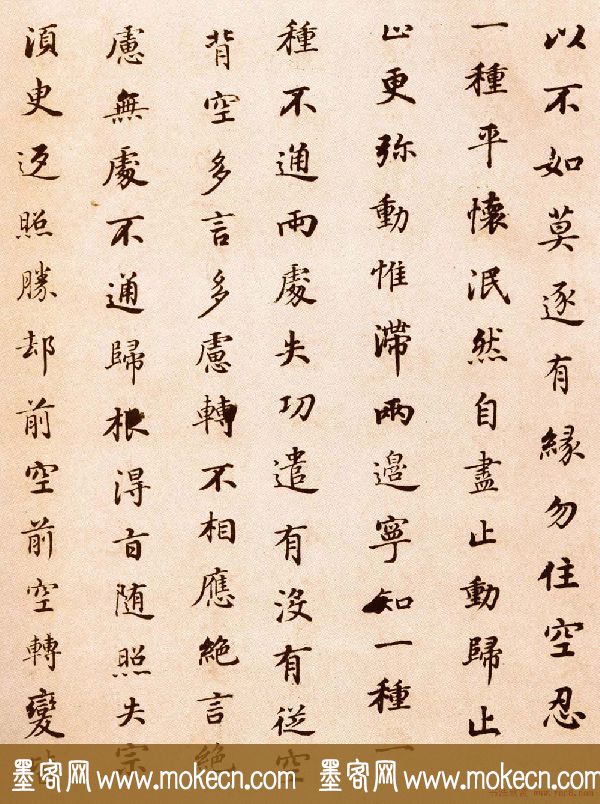 以不如莫逐有緣勿住空忍
一種平懷泯然自盡止動歸止
止更弥動惟滯兩邊寧知一種一
種不通兩處失功遣有沒有從空
背空多言多慮轉不相應絕言絕
慮無處不通歸根得旨随照失宗
須臾返照勝却前空前空轉變
墨客网 www.mokecn.com 墨客网 www.mokecn.com